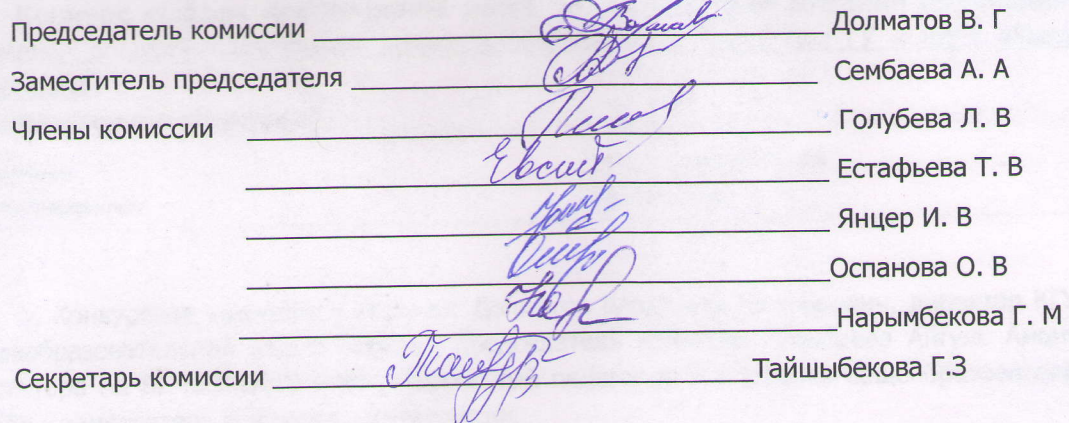 Председатель комиссии Долматов В. Г
Заместитель председателя Сембаева А. А
Члены комиссии Голубева Л. В
Естафьева Т. В
Янцер И. В
Оспанова О. В
Нарымбекова Г. М
Секретарь комиссии Тайшыбекова Г.З